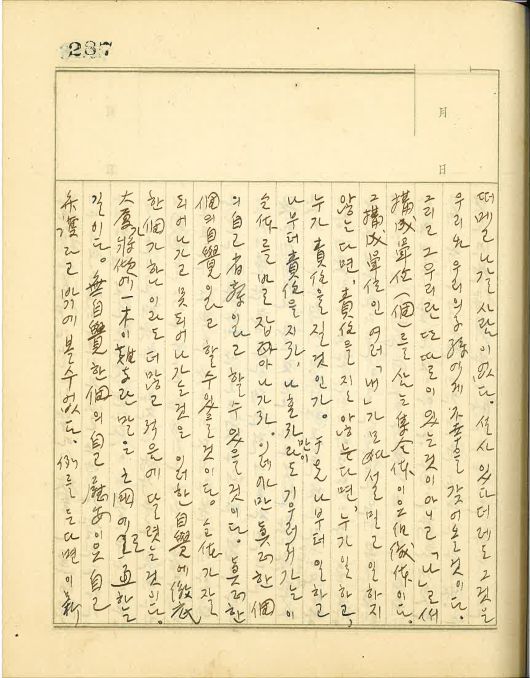 237
月
日
떠메고 나갈 사람이 없다. 설사 있다 더래도 그것은
우리와 우리의 子孫에게 不幸을 갖어올 것이다.
그리고 그 우리란 단 따로이 있는 것이 아니고 「나」로서
構成單位(個)를 삼는 集全体이오 組織体이다.
그 構成單位인 여러 「내」가 모다 설 밀고 일하지
않는다면, 責任을 지지 않는다면, 누가 일하고,
누가 責任을 질 것인가. 于先 나부터 일하고
나부터 責任을 지라, 나 혼자만이라도 기우러저가는 이
全体를 바로 잡아 나가라. 이래야만 眞正한 個
의 自己 省察이라고 할 수 있을 것이다. 眞正한
個의 自覺이라고 할 수 있을 것이다. 全体가 잘
되어 나가고 못 되어 나가는 것은 이러한 自覺에 徹底
한 個가 하나이라도 더 많고 적은데 달렸는 것이다.
大廈將傾에 一木이 難支란 말은 亡國에로 通하는
길이다. 無自覺한 個의 自己 慰安이오 自己
弁護라고 밖에 볼 수 없다. 例를 든다면 이 新